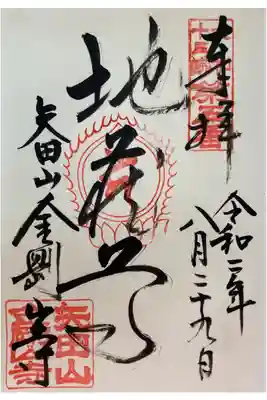 奉拝
令和二年
八月二十九日
地蔵尊
矢田山金剛山寺
矢田山
金剛山寺